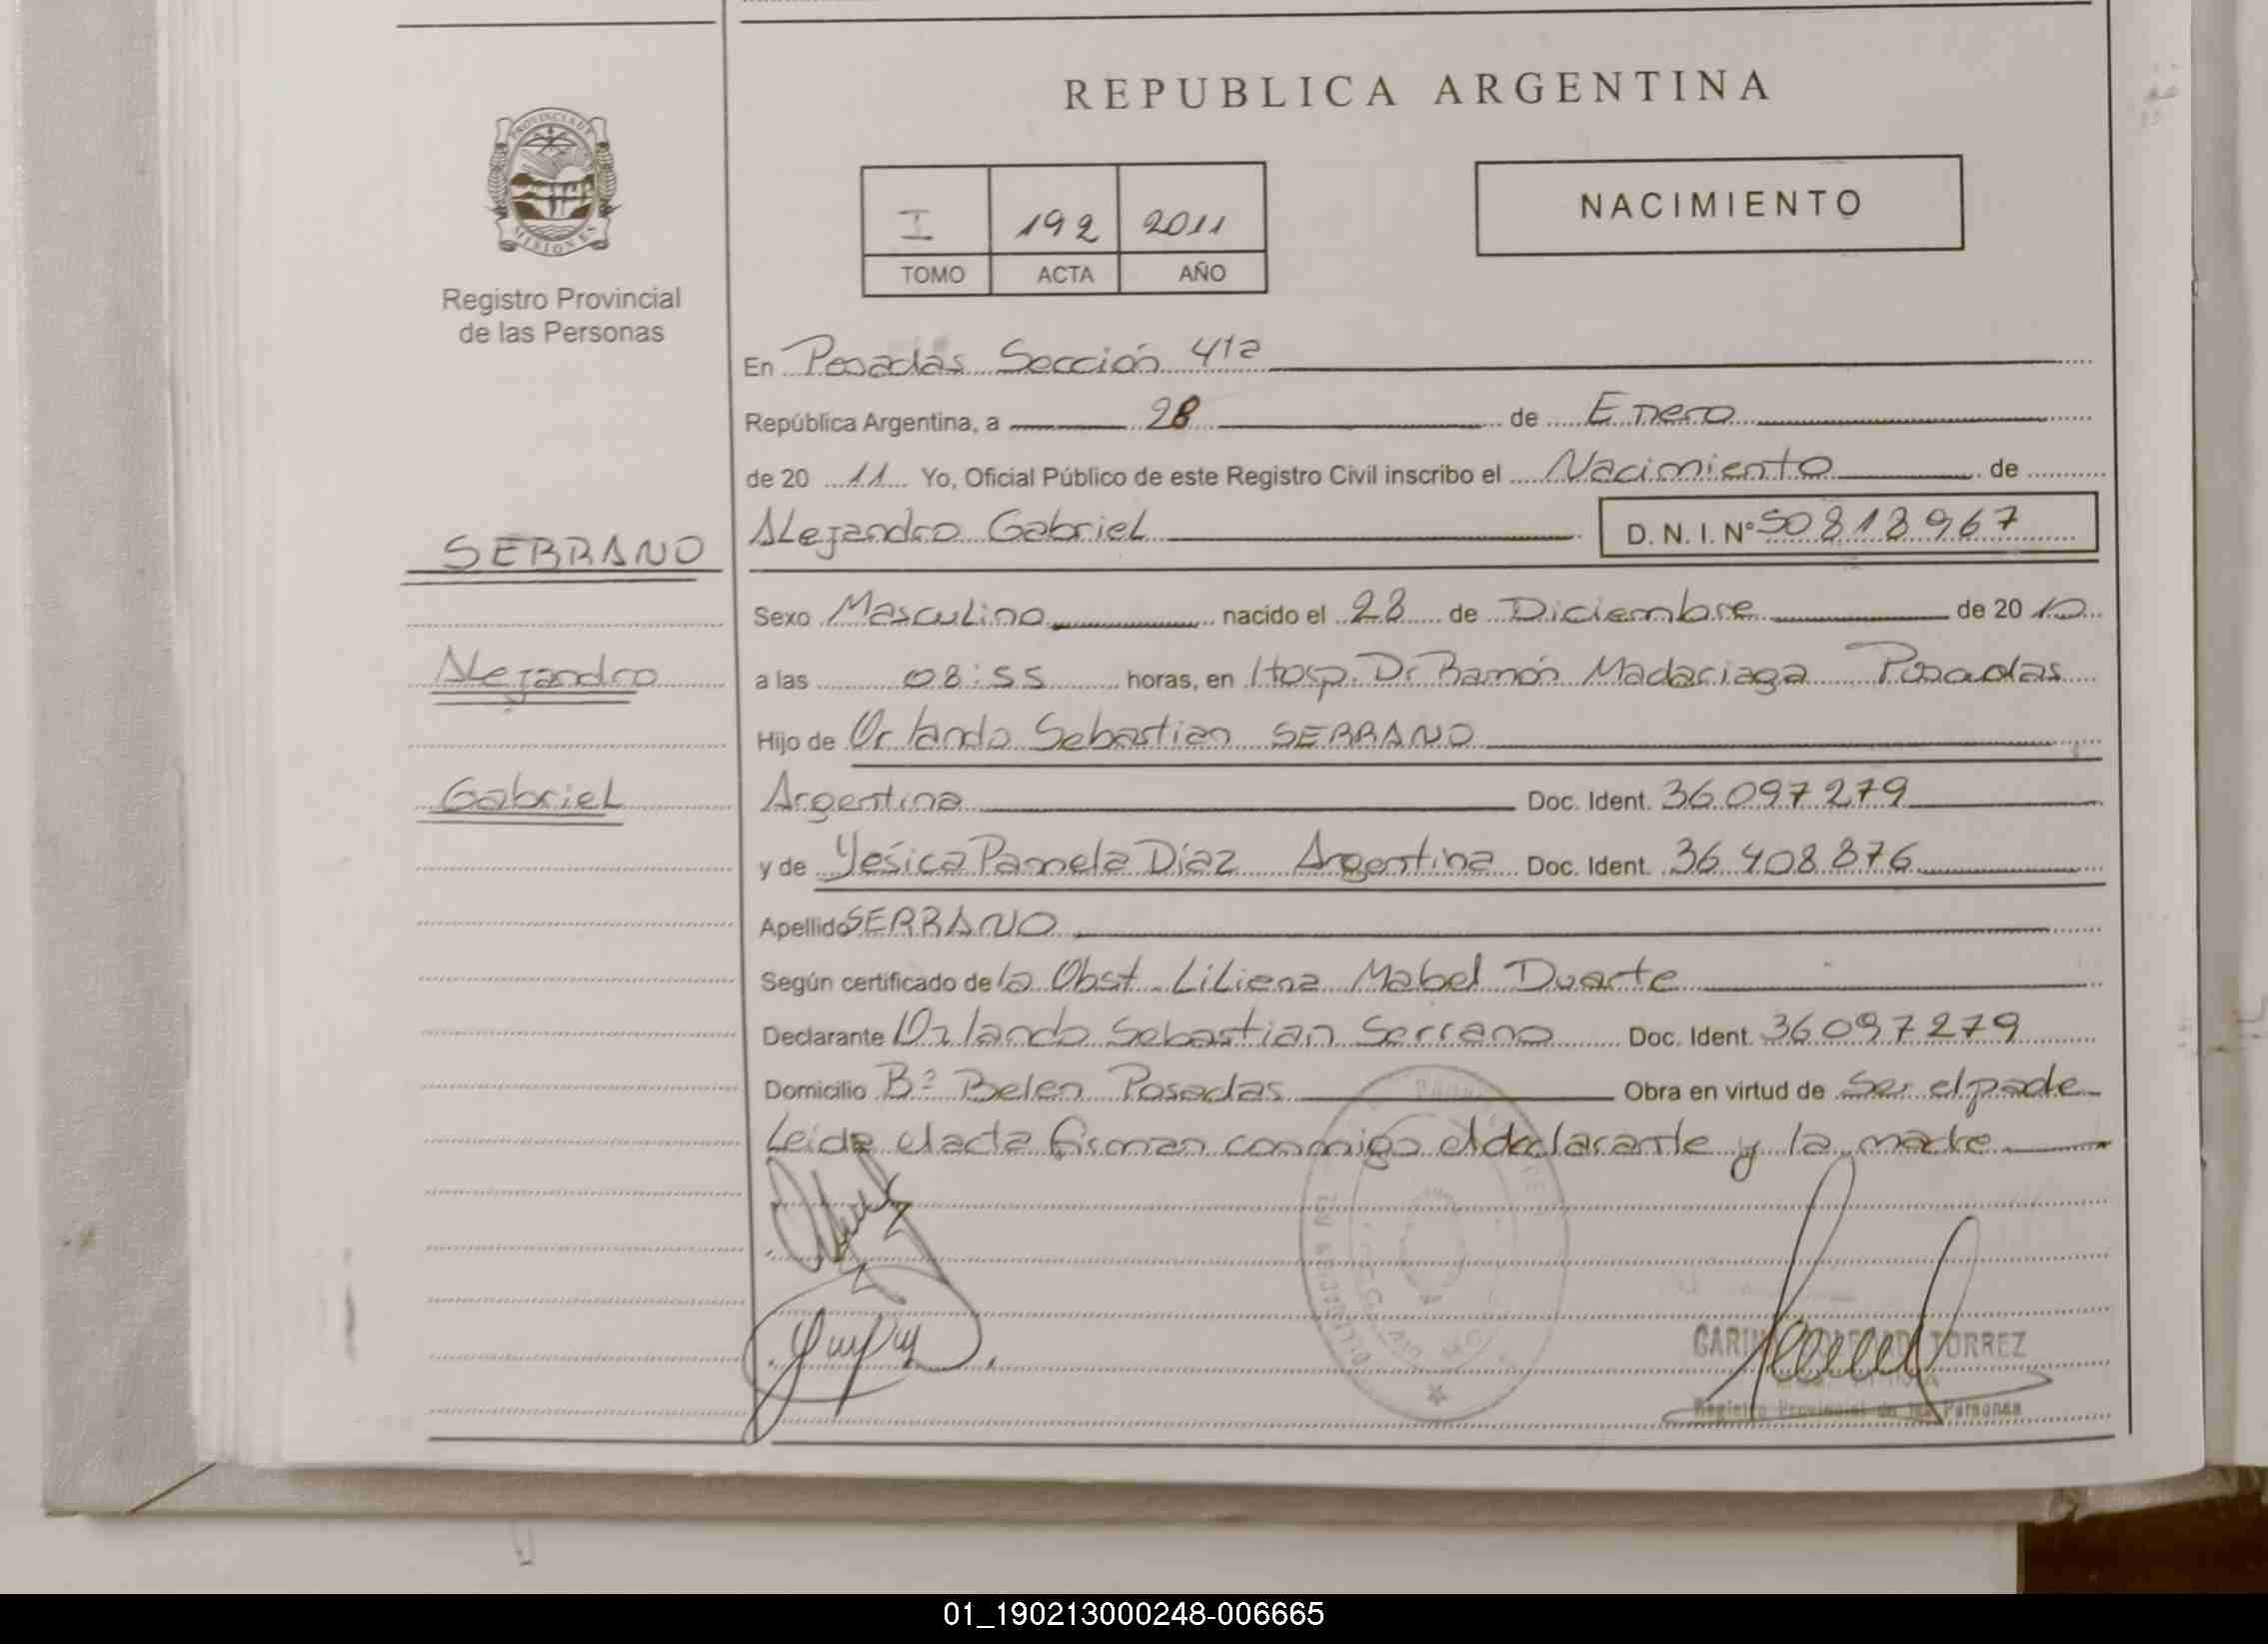 REPUBLICA ARGENTINA
PROVINCIA DE
MISIONES
Registro Provincial
de las Personas
I 192 2011
TOMO ACTA AÑO
NACIMIENTO
En Posadas Sección 41a
República Argentina, a 28 de Enero
de 20 11 Yo, Oficial Público de este Registro Civil inscribo el Nacimiento de
SERRANO
Alejandro Gabriel D. N. I. Nº 50818967
Sexo Masculino nacido el 28 de Diciembre de 20 10
Alejandro
a las 08:55 horas, en Hosp. Dr Ramón Madariaga Posadas
Hijo de Orlando Sebastian SERRANO
Gabriel
Argentina Doc. Ident. 36097279
y de Yesica Pamela Diaz Argentina Doc. Ident. 36408876
Apellido SERRANO
Según certificado de la Obst. Liliana Mabel Duarte
Declarante Orlando Sebastian Serrano Doc. Ident. 36097279
Domicilio Bº Belen Posadas Obra en virtud de Ser el padre
Leida el acta firman conmigo el declarante y la madre
TORREZ
Registro Provincial de las Personas
01_190213000248-006665